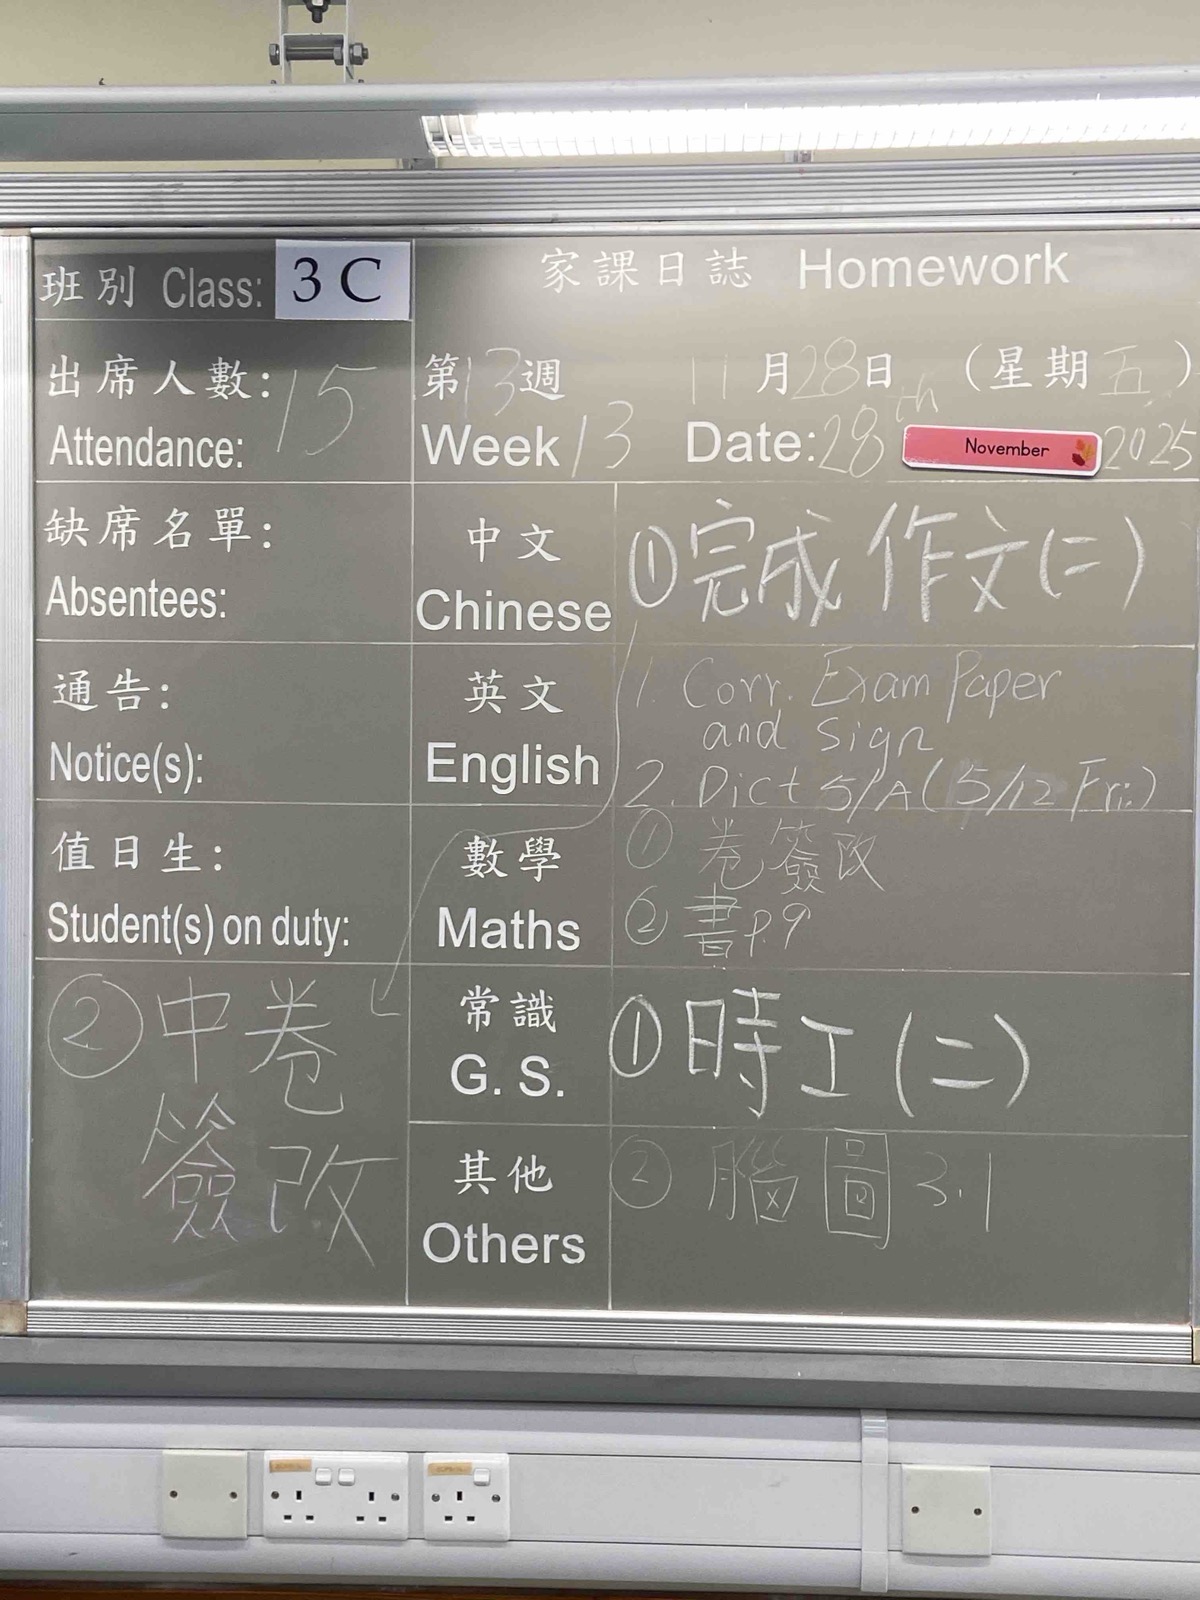 班別 Class: 3C
家課日誌 Homework
出席人數: 15
Attendance:
第13週 11月28日 (星期五)
Week 13 Date: 28th November 2025
缺席名單:
Absentees:
中文
Chinese
①完成作文(二)
通告:
Notice(s):
英文
English
1. Corr. Exam Paper
and Sign
2. Dict 5/A (5/12 Fri.)
值日生:
Student(s) on duty:
數學
Maths
① 卷簽改
② 書p.9
②中卷
簽改
常識
G. S.
①時工(二)
其他
Others
② 腦圖 3.1